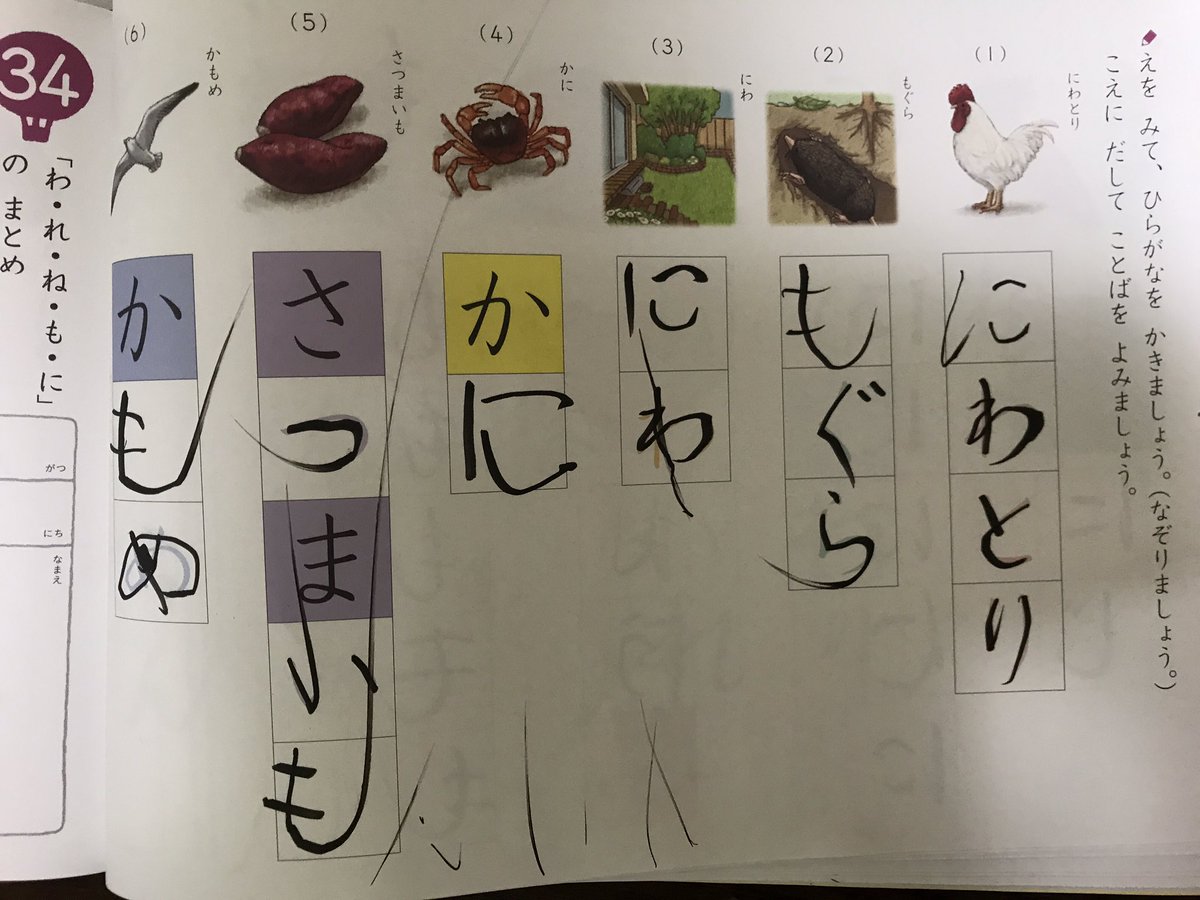 えを みて、ひらがなを かきましょう。(なぞりましょう。)
こえに だして ことばを よみましょう。
(1)
にわとり
にわとり
(2)
もぐら
もぐら
(3)
にわ
にわ
(4)
かに
かに
(5)
さつまいも
さつまいも
(6)
かもめ
かもめ
34
「わ・れ・ね・も・に」
の まとめ
がつ
にち
なまえ